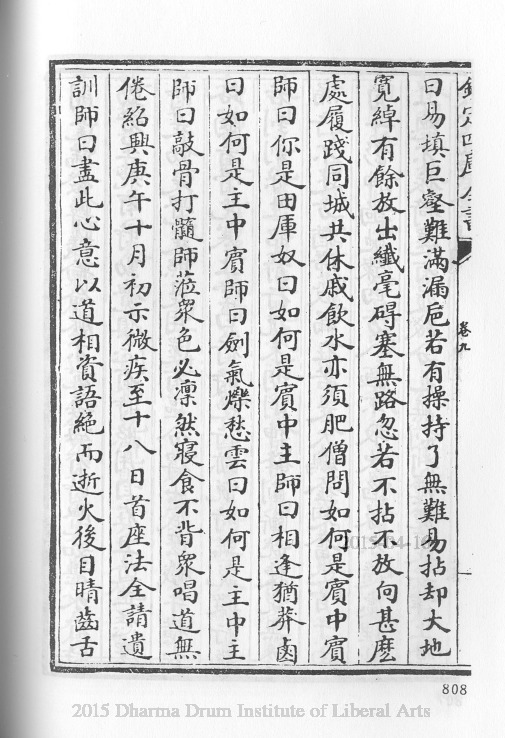 欽定四庫全書
卷九
曰易填巨壑難滿漏巵若有操持了無難易拈却大地
寛綽有餘放出纖毫碍塞無路忽若不拈不放向甚麽
處履踐同城共休戚飲水亦須肥僧問如何是賓中賓
師曰你是田厙奴曰如何是賓中主師曰相逢猶莽鹵
曰如何是主中賓師曰劍氣爍愁雲曰如何是主中主
師曰敲骨打髓師蒞衆色必凛然寢食不背衆唱道無
倦紹興庚午十月初示微疾至十八日首座法全請遺
訓師曰盡此心意以道相資語絶而逝火後目睛齒舌
808
2015 Dharma Drum Institute of Liberal Arts